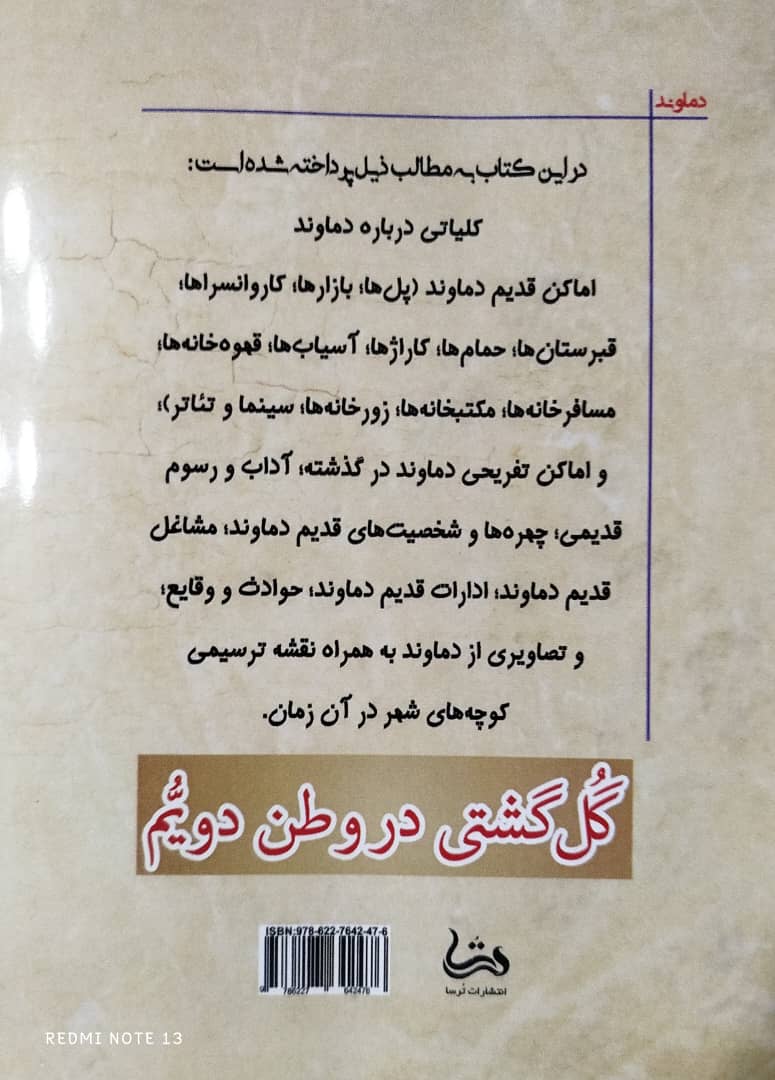 دماوند
در این کتاب به مطالب ذیل پرداخته شده است:
کلیاتی درباره دماوند
اماکن قدیم دماوند (پل‌ها؛ بازارها؛ کاروانسراها؛
قبرستان‌ها؛ حمام‌ها؛ کاراژها؛ آسیاب‌ها؛ قهوه‌خانه‌ها؛
مسافرخانه‌ها؛ مکتبخانه‌ها؛ زورخانه‌ها؛ سینما و تئاتر)؛
و اماکن تفریحی دماوند در گذشته؛ آداب و رسوم
قدیمی؛ چهره‌ها و شخصیت‌های قدیم دماوند؛ مشاغل
قدیم دماوند؛ ادارات قدیم دماوند؛ حوادث و وقایع؛
و تصاویری از دماوند به همراه نقشه ترسیمی
کوچه‌های شهر در آن زمان.
گُل گشتی در وطن دویُّم
ISBN:978-622-7642-47-6
9 786227 642476
ترسا
انتشارات تُرسا
REDMI NOTE 13